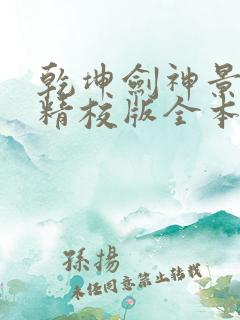 乾坤劍神景
精校版全本
孫揚
未任同意禁止转载